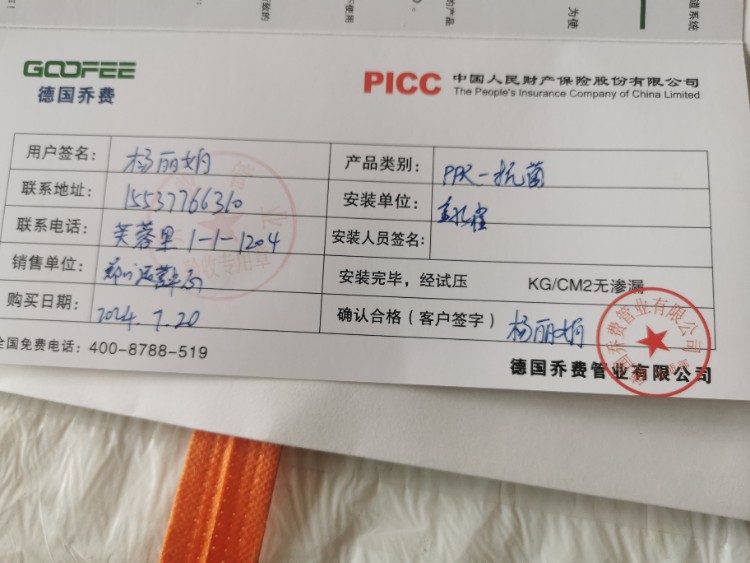 道系统
为使
的产品
使用
致的
GOOFEE
德国乔费
PICC 中国人民财产保险股份有限公司
The People's Insurance Company of China Limited
用户签名: 杨丽娟
产品类别: PPR-抗菌
联系地址: 15537766310
安装单位:
联系电话: 芙蓉里 1-1-1204
安装人员签名:
销售单位: 郑州运营中心
安装完毕，经试压 KG/CM2无渗漏
购买日期: 2024.7.20
确认合格（客户签字） 杨丽娟
全国免费电话: 400-8788-519
德国乔费管业有限公司
验收专用章
德国乔费管业有限公司